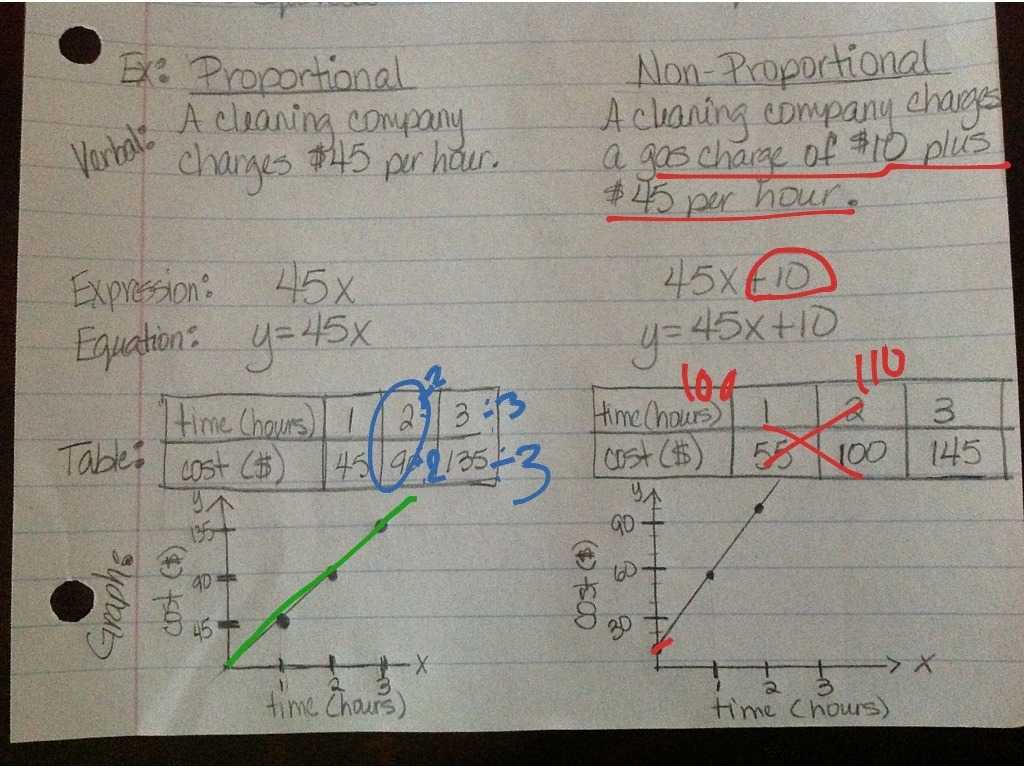 Ex: Proportional
Non-Proportional
Verbal:
A cleaning company
charges $45 per hour.
A cleaning company charges
a gas charge of $10 plus
$45 per hour.
Expression: 45x
45x+10
Equation: y=45x
y=45x+10
Table:
time (hours) 1 2 ÷2 3 ÷3
cost ($) 45 90 ÷2 135 ÷3
100 110
time (hours) 1 2 3
cost ($) 55 100 145
Graph:
y
135
90
45
cost ($)
1 2 3 x
time (hours)
y
90
60
30
cost ($)
1 2 3 x
time (hours)